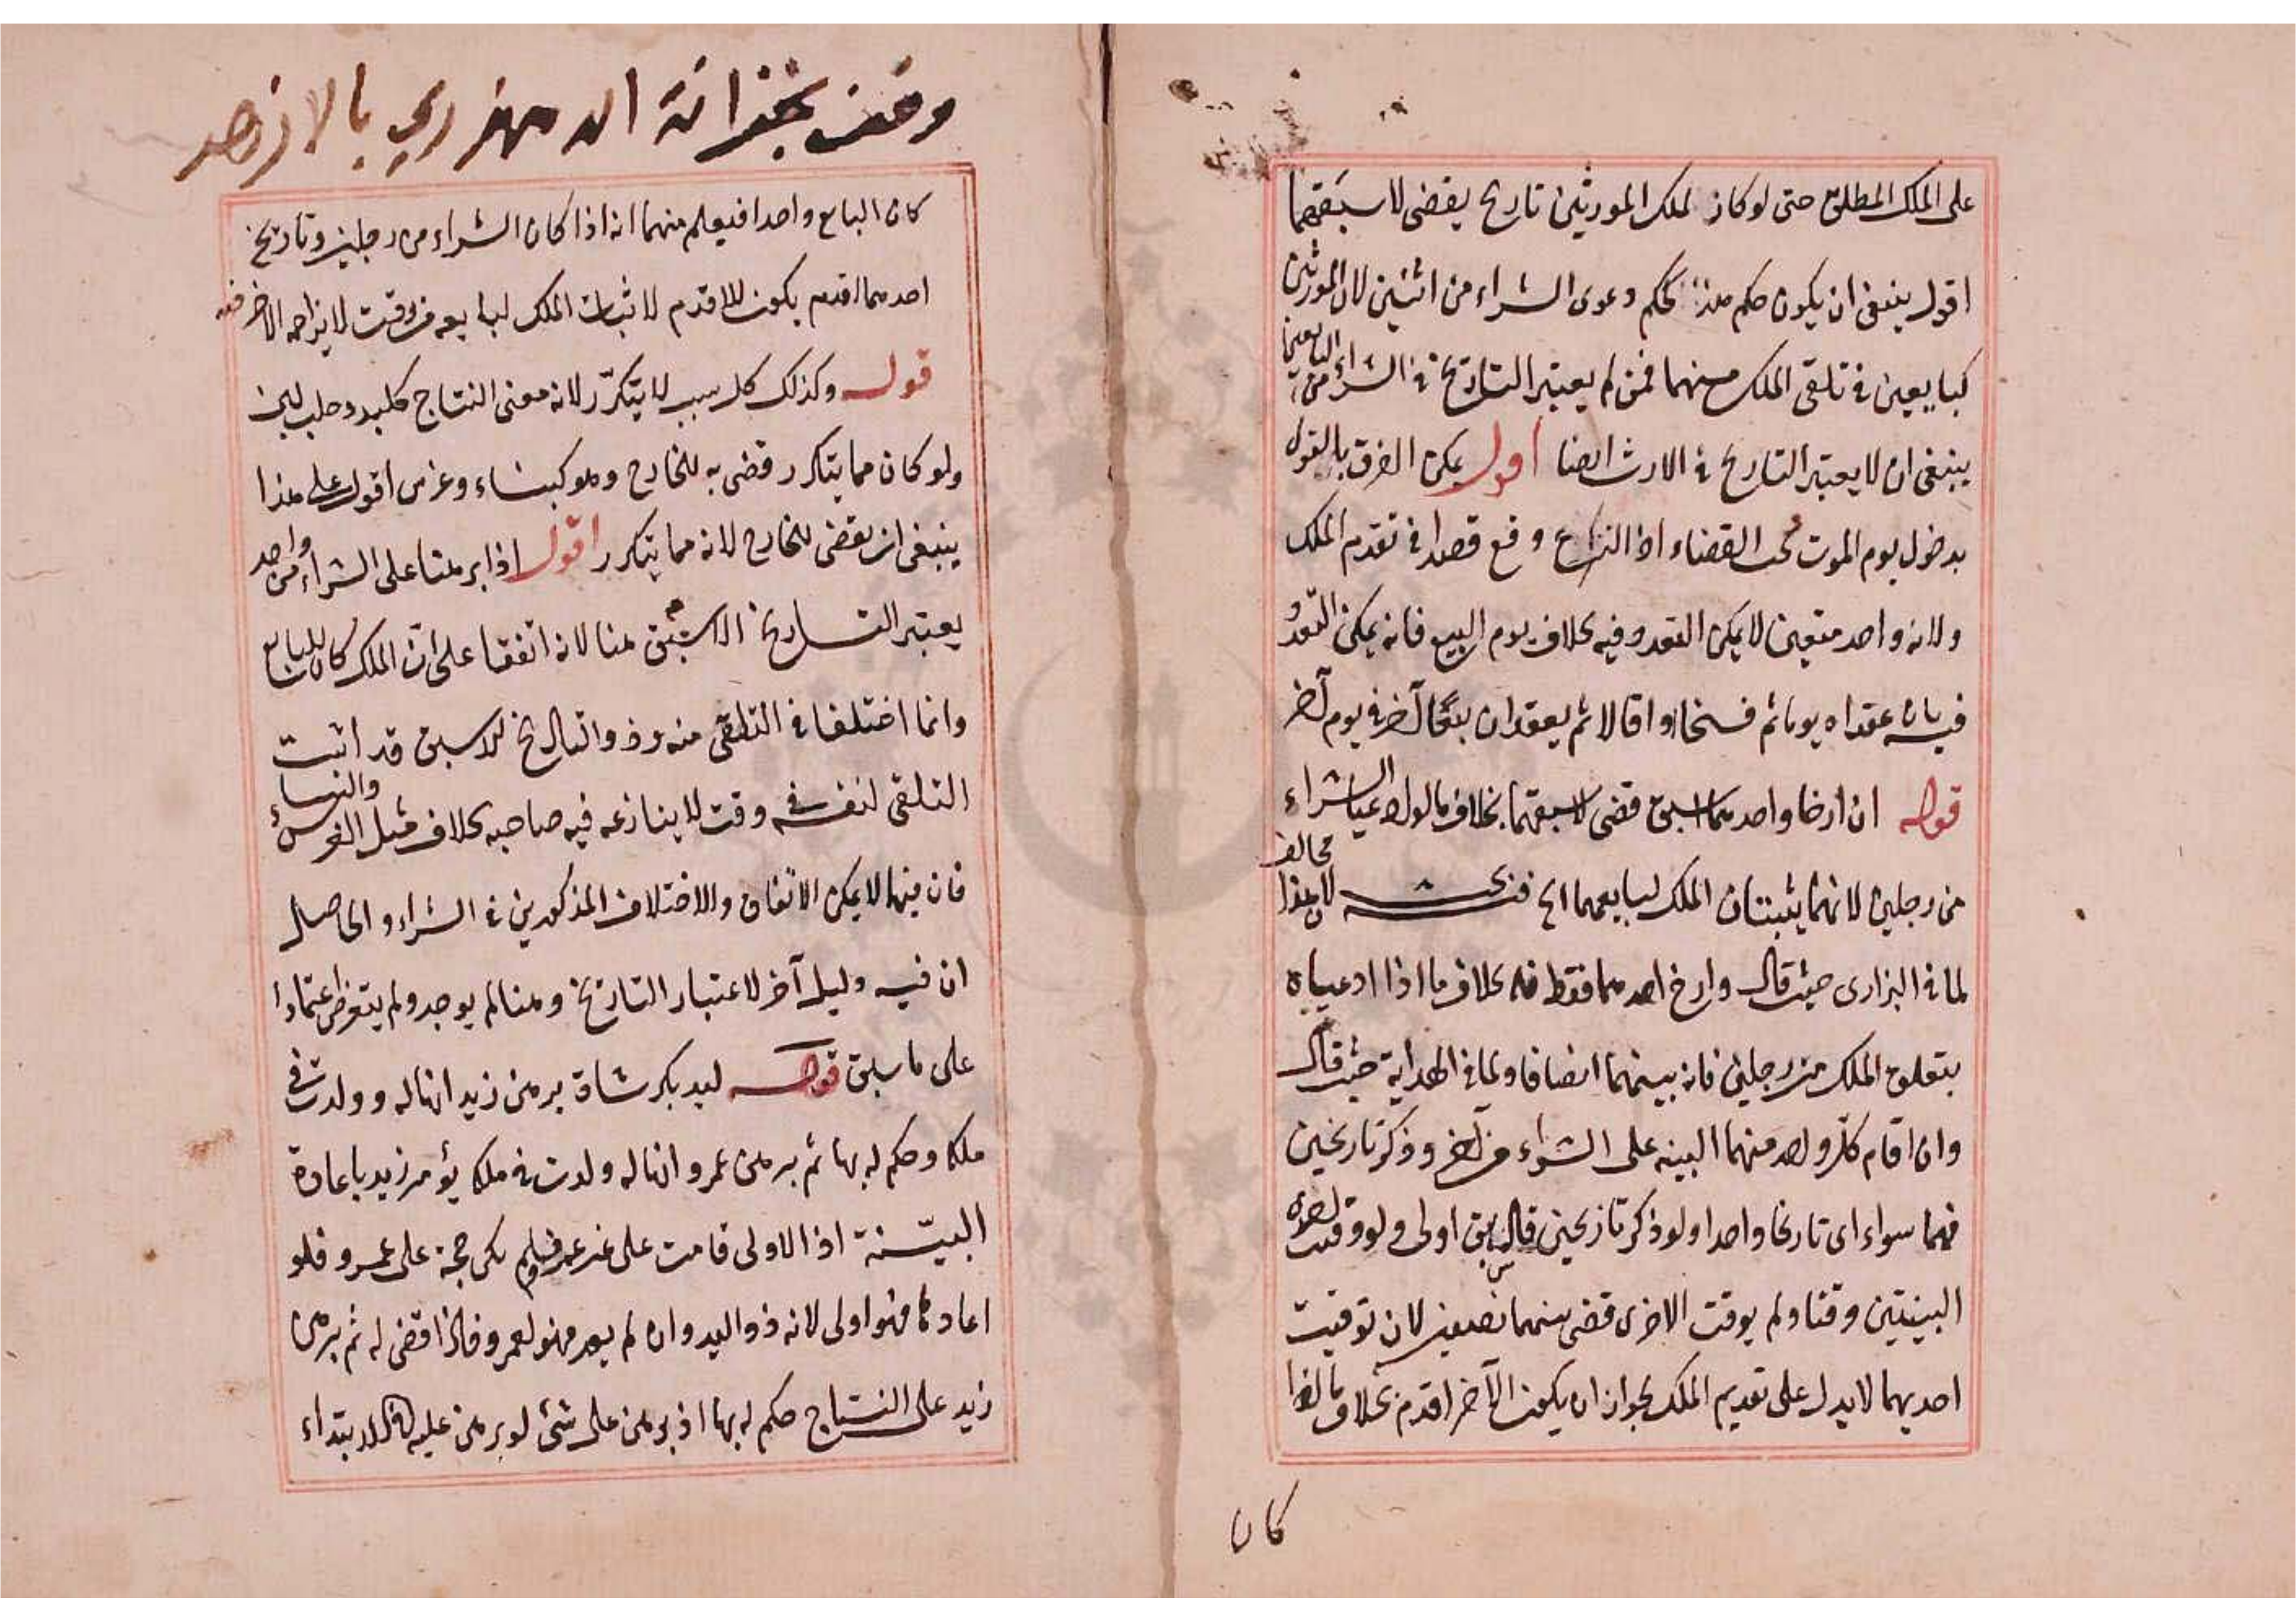 على الملك المطلق حتى لو كان لملك المورثين تاريخ يقضى لاسبقهما
اقول ينبغى ان يكون حكم هذا كحكم دعوى الشراء من اثنين لان المورثين
كبايعين فى تلقى الملك منهما فمن لم يعتبر التاريخ فى الشراء من البايعين
ينبغى ان لا يعتبر التاريخ فى الارث ايضا اقول يمكن الفرق بالقول
بدخول يوم الموت تحت القضاء اذ النزاع وقع قصدا فى تقدم الملك
ولانه واحد متعين لا يمكن التعدد فيه بخلاف يوم البيع فانه يمكن التعدد
فيه بان عقداه يوما ثم فسخا او اقالا ثم يعقدان بيعا آخر فى يوم آخر
قوله ان ارخا واحدهما اسبق قضى لاسبقهما بخلاف ما لو ادعيا الشراء
من رجلين لانهما يثبتان الملك لبايعهما الخ فيه بحث لان هذا مخالف
لما فى البزازى حيث قال وارخ احدهما فقط فله بخلاف ما اذا ادعياه
بتعلق الملك من رجلين فانه بينهما انصافا ولما فى الهداية حيث قال
وان اقام كل واحد منهما البينه على الشراء من آخر وذكر تاريخين
فهما سواء اى تاريخا واحدا ولو ذكر تاريخين فالسابق اولى ولو وقت احدى
البينتين وقتا ولم يوقت الاخرى قضى بينهما نصفين لان توقيت
احديهما لا يدل على تقديم الملك لجواز ان يكون الآخر اقدم بخلاف ما اذا
كان
وقف بخزانة الدمنهوري بالازهر
كان البايع واحدا فيعلم منهما انه اذا كان الشراء من رجلين وتاريخ
احدهما اقدم يكون للاقدم لاثبات الملك لبايعه فى وقت لا يزاحمه الآخر فيه
قوله وكذلك كل سبب لا يتكرر لانه معنى النتاج كلبد وحلب لبن
ولو كان مما يتكرر قضى به للخارج وهو كبناء وغرس اقول على هذا
ينبغى ان يقضى للخارج لانه مما يتكرر اقول اذا برهنا على الشراء من واحد
يعتبر التاريخ الاسبق هنا لانه اتفقا على ان الملك كان للبايع
وانما اختلفا فى التلقى منه وذو التاريخ الاسبق قد اثبت
التلقى لنفسه فى وقت لا ينازعه فيه صاحبه بخلاف مثل الغرس والبناء
فان فيها لا يمكن الاتفاق والاختلاف المذكورين فى الشراء والحاصل
ان فيه دليل آخر لاعتبار التاريخ وهنا لم يوجد ولم يتعرض اعتمادا
على ما سبق قوله ليد بكر شاة برهن زيد انها له وولدت فى
ملكه وحكم له بها ثم برهن عمرو انها له ولدت فى ملكه يؤمر زيد باعادة
البينة اذ الاولى قامت على غير عمرو فلم تكن حجة على عمرو فلو
اعادها فهو اولى لانه ذو اليد وان لم يعد فهو لعمرو فاذا قضى له ثم برهن
زيد على النتاج حكم له بها اذ برهن على شئ لو برهن عليه فى الابتداء